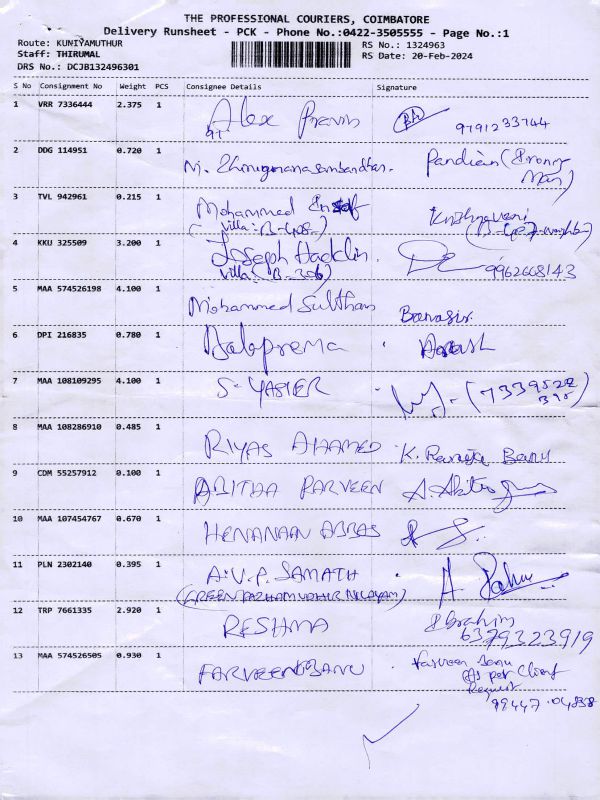 THE PROFESSIONAL COURIERS, COIMBATORE
Delivery Runsheet - PCK - Phone No.:0422-3505555 - Page No.:1
Route: KUNIYAMUTHUR
RS No.: 1324963
Staff: THIRUMAL
RS Date: 20-Feb-2024
DRS No.: DCJB132496301
S No Consignment No Weight PCS Consignee Details Signature
1 VRR 7336444 2.375 1 Alex Pravin
9791233744
2 DDG 114951 0.720 1 Pandian
3 TVL 942961 0.215 1 Mohammed
Villa: B-
4 KKU 325509 3.200 1 Joseph
Villa (B-306) 9962668143
5 MAA 574526198 4.100 1 Mohammed Sulthan
6 DPI 216835 0.780 1 Balaprema
7 MAA 108109295 4.100 1 S. YASIER
8 MAA 108286910 0.485 1 RIYAS AHAMED K. Banu
9 CDM 55257912 0.100 1 ABITHA PARVEEN
10 MAA 107454767 0.670 1 ABBAS
11 PLN 2302140 0.395 1 A.V.P. SAMATH
(GREEN PAZHAMUDHIR NILAYAM)
12 TRP 7661335 2.920 1 RESHMA Ibrahim
6379323919
13 MAA 574526505 0.930 1 FARVEENBANU Farveen Banu
As per Client
Request
99447 04838